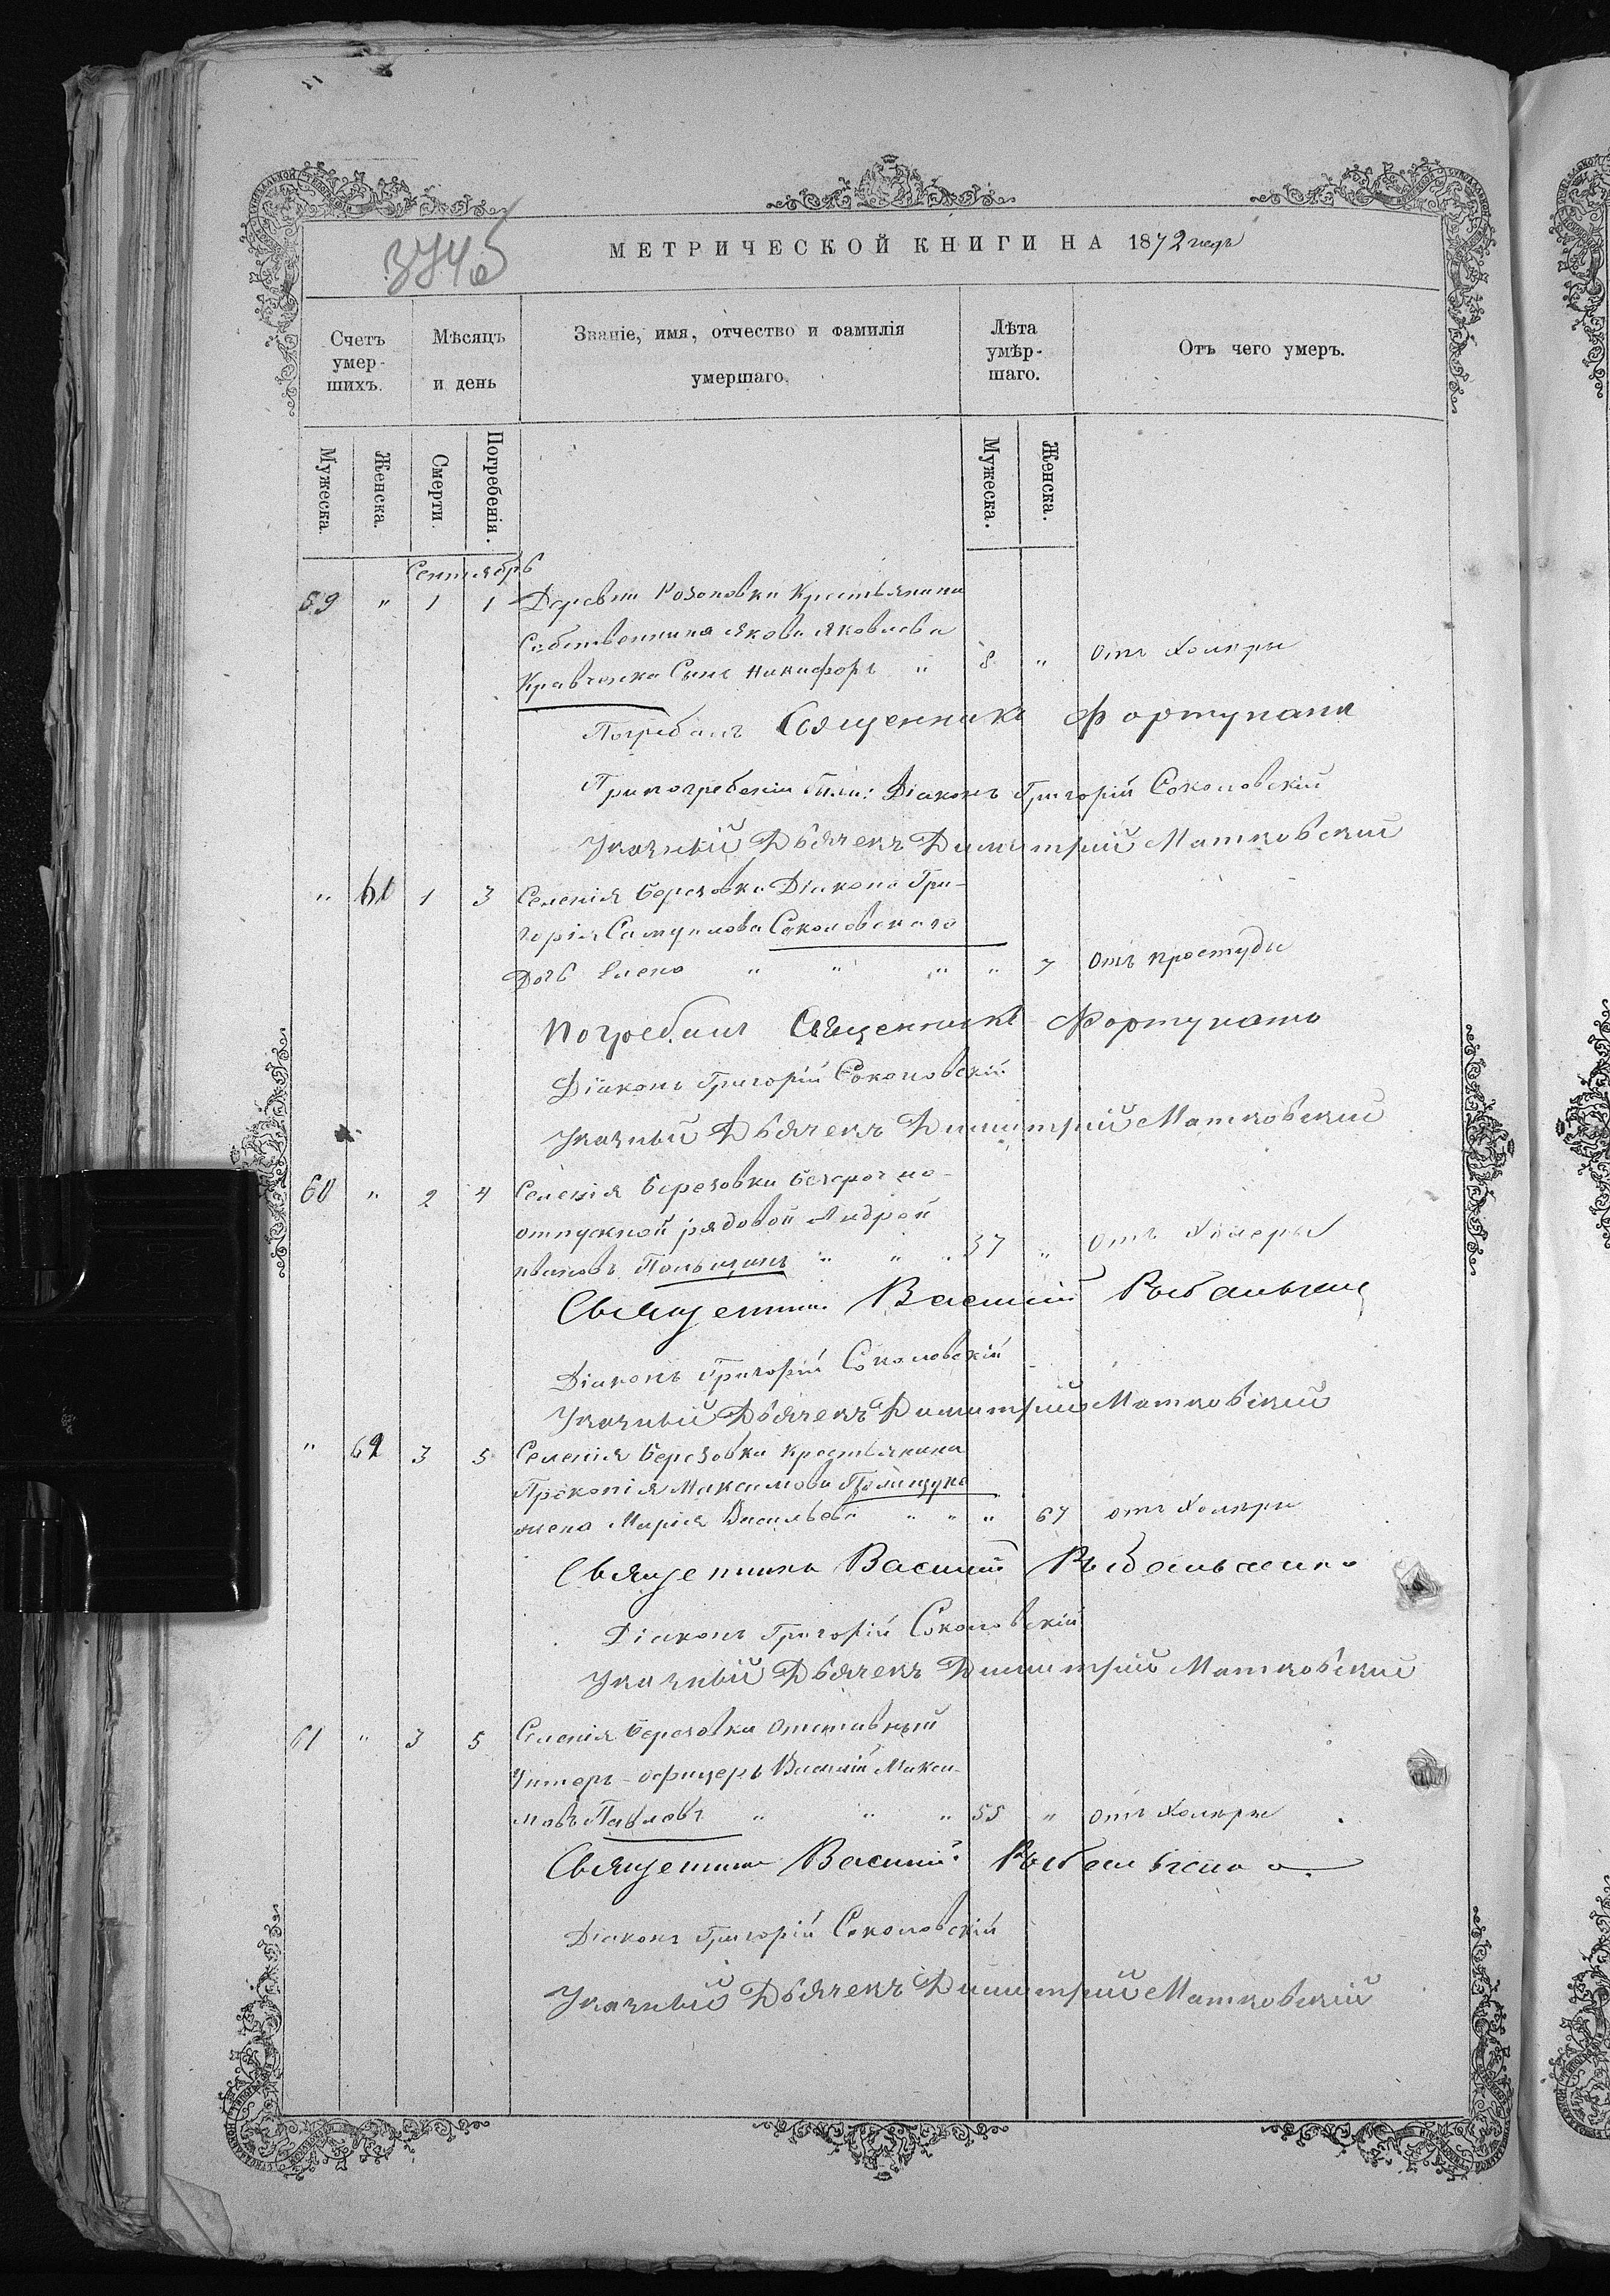 МЕТРИЧЕСКОЙ КНИГИ НА 1872 годъ
Счетъ умер-шихъ.
Мѣсяцъ и день
Званіе, имя, отчество и фамилія умершаго.
Лѣта умѣр-шаго.
Отъ чего умеръ.
Мужеска.
Женска.
Смерти.
Погребенія.
Мужеска.
Женска.
Сентябрь
59 " 1 1 Деревни Розоповки Крестьянина
Собственника Якова Яковлева
Кравченка Сынъ Никифоръ " 8 " Отъ Холеры
Погребалъ Священникъ Фортунатъ
При погребеніи были: Діаконъ Григорій Соколовскій
Указный Дьячекъ Димитрий Матковский
" 61 1 3 Селенія Березовки Діакона Гри-
горія Самуилова Соколовскаго
Дочь Елена " " " " 7 Отъ простуды
Погребалъ Священникъ Фортунатъ
Діаконъ Григорій Соколовскій
Указный Дьячекъ Димитрий Матковский
60 " 2 4 Селенія Березовки безсрочно-
отпускной рядовой Андрей
Ивановъ " " " 37 " Отъ Холеры
Священникъ Василий Рыбальченко
Діаконъ Григорій Соколовскій
Указный Дьячекъ Димитрий Матковский
" 62 3 5 Селенія Березовки Крестьянина
Прокопія Максимова Полищука
жена Марія Васильева " " " 67 отъ Холеры
Священникъ Василий Рыбальченко
Діаконъ Григорій Соколовскій
Указный Дьячекъ Димитрий Матковский
61 " 3 5 Селенія Березовки Отставный
Унтеръ-офицеръ Василій Макси-
мовъ Павловъ " " " 55 " отъ Холеры
Священникъ Василий Рыбальченко
Діаконъ Григорій Соколовскій
Указный Дьячекъ Димитрий Матковский